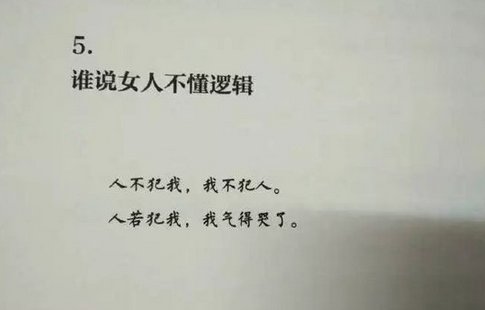 5.
谁说女人不懂逻辑
人不犯我，我不犯人。
人若犯我，我气得哭了。